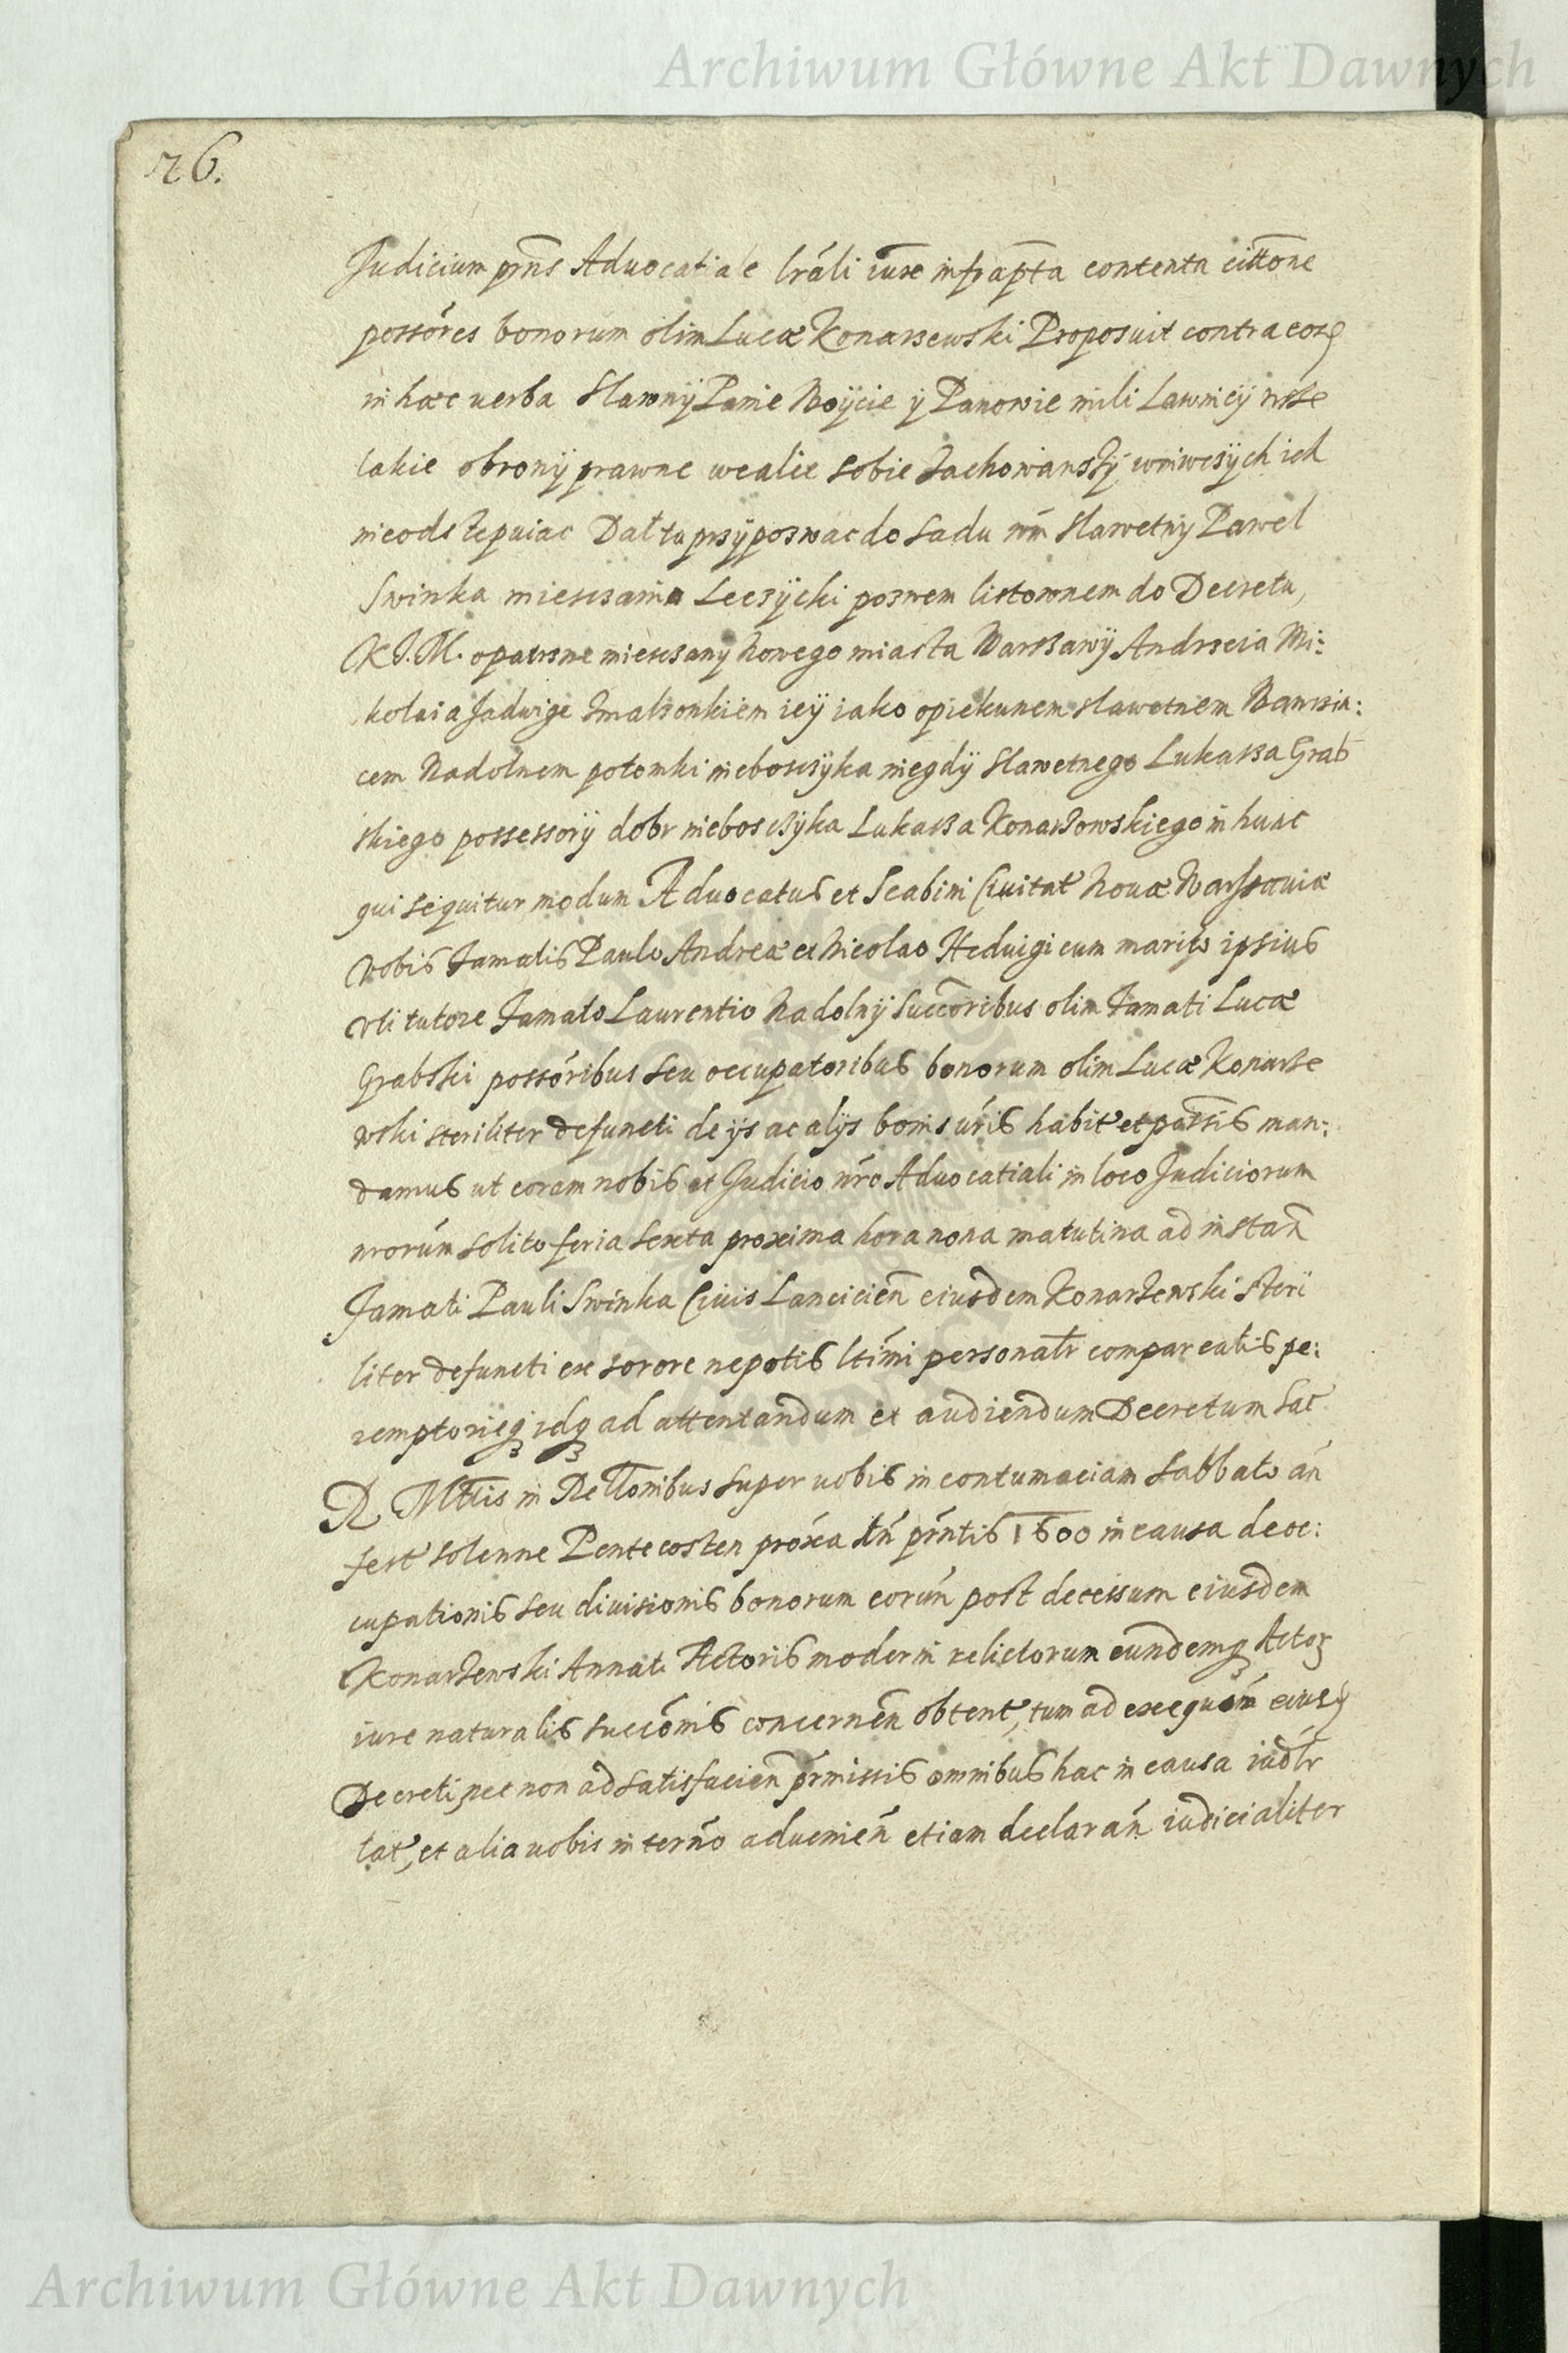 Archiwum Główne Akt Dawnych
26.
Judicium prn̄s Aduocatiale lr̄ali iure infrap̄ta contenta citt̄one
possōres bonorum olim Lucæ Konarzewski Proposuit contra eosq
in hæc uerba Slawnÿ Panie Woÿcie ÿ Panowie mili Lawnicÿ wsze
lakie obronÿ prawne wcalie sobie zachowanszÿ wniwczÿch ich
nieodstepuiac Dał tu przÿpozwac do sadu wm̄ Slawetnÿ Pawel
Swinka miesczanin Leczÿcki pozwem listownem do Decretu,
K J. M. opatrzne miesczany Nowego miasta Warszawÿ Andrzeia Mi:
kolaia Jadwige zmalzonkiem ieÿ iako opiekunem slawetnem Wawrzin:
cem Nadolnem potomki niebosczÿka niegdÿ Slawetnego Lukasza Grab
skiego possessorÿ dobr niebosczÿka Lukasza Konarzowskiego in hunc
qui sequitur modum Aduocatus et Scabini Ciuitat Nouæ Warszauiæ
Vobis Famatis Paulo Andreæ et Nicolao Heduigi cum marito ipsius
vti tutore Famato Laurentio Nadolnÿ Succ̄oribus olim Famati Lucæ
Grabski possōribus seu occupatoribus bonorum olim Lucæ Konarze
wski steriliter defuncti de ijs ac alijs bonis ūris habit et man:
damus ut coram nobis et Judicio nr̄o Aduocatiali in loco Judiciorum
nrorūm solito feria sexta proxima hora nona matutina ad instan̄
Famati Pauli Swinka Ciuis Lancicien̄ eiusdem Konarzewski steri
liter defuncti ex sorore nepotis ltīmi personalr̄ compareatis pe:
remptorieq idq ad attentandum et audiendum Decretum Sac
R. Mttis in Rell̄onibus super uobis in contumaciam Sabbato an̄
fest solenne Pentecosten prōxa An̄ prn̄tis 1600 in causa deoc:
cupationis seu diuisionis bonorum eorūn post decessum eiusdem
Konarzewski Annati Actoris moderni relictorum eundemq Actor
iure naturalis succōnis concernen̄ obtent, tum ad exequōm eiusq
Decreti, nec non ad satisfacien̄ prm̄issis omnibus hac in causa iudlr̄
lat, et alia uobis in termō aduenien̄ etiam declaran̄ iudicialiter
Archiwum Główne Akt Dawnych